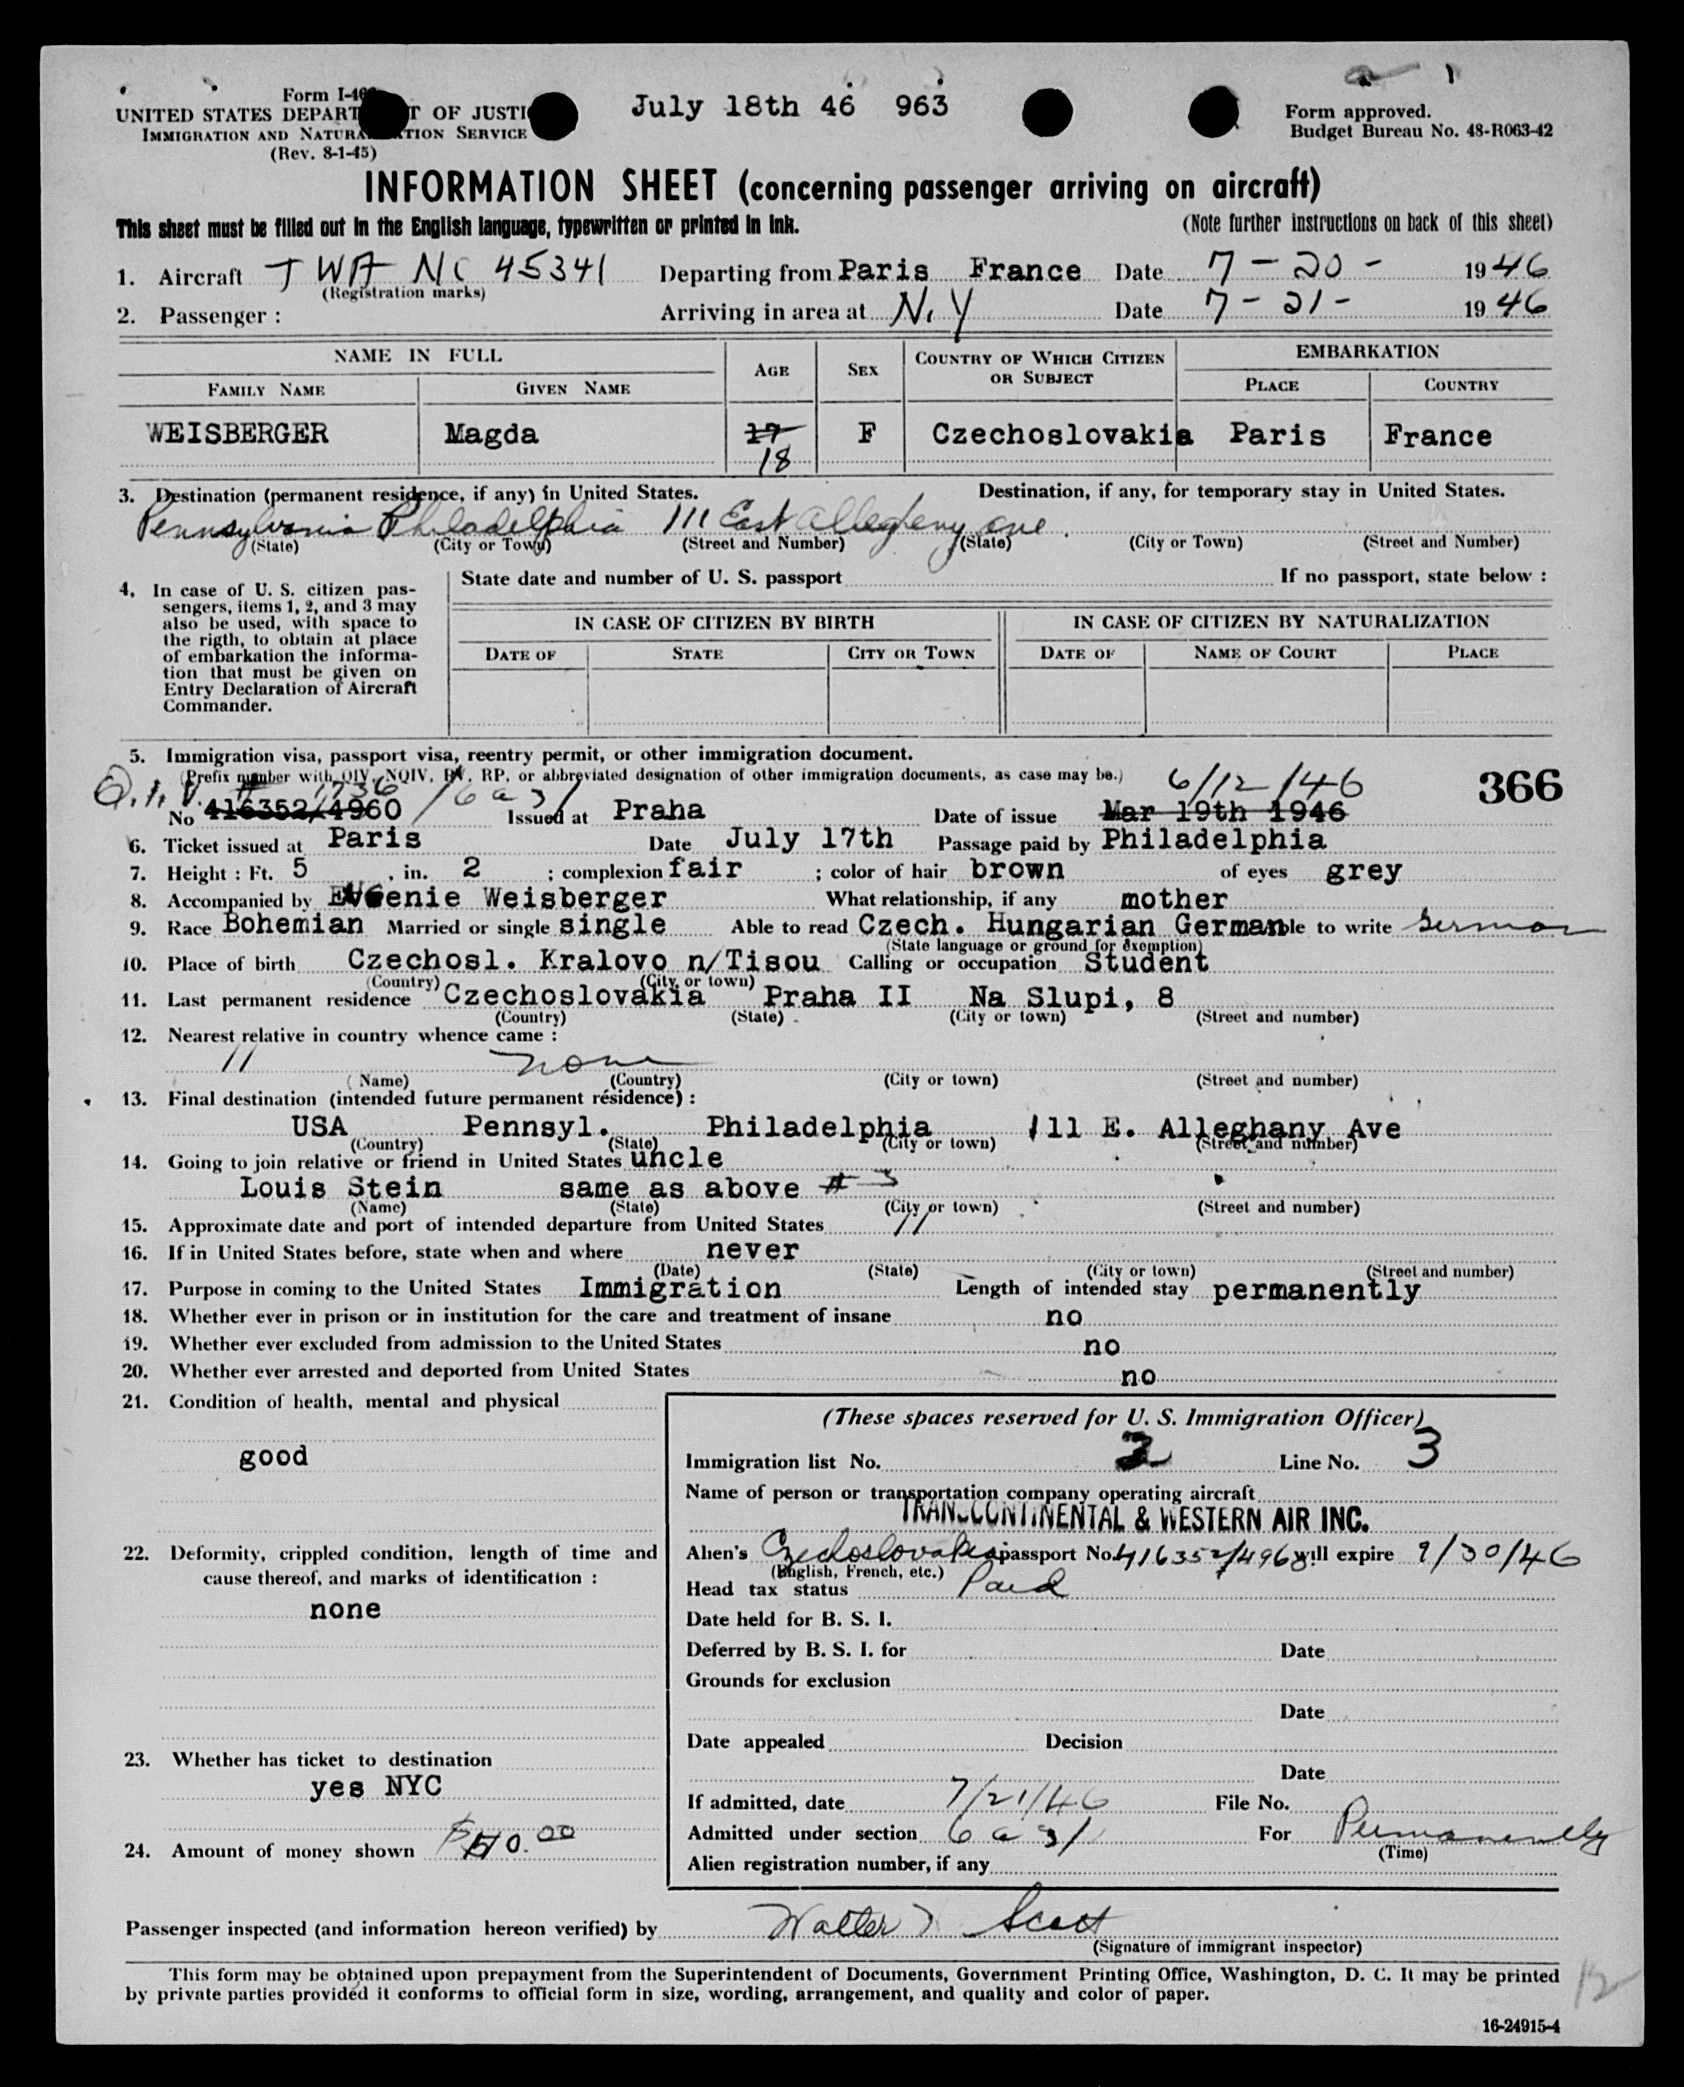 Form I-466
July 18th 46 963
UNITED STATES DEPART T OF JUSTI
Form approved.
IMMIGRATION AND NATURA TION SERVICE
Budget Bureau No. 48-R063-42
(Rev. 8-1-45)
INFORMATION SHEET (concerning passenger arriving on aircraft)
This sheet must be filled out in the English language, typewritten or printed in ink. (Note further instructions on back of this sheet)
1. Aircraft TWA NC 45341 Departing from Paris France Date 7-20- 1946
(Registration marks)
2. Passenger : Arriving in area at N.Y Date 7-21- 1946
NAME IN FULL AGE SEX COUNTRY OF WHICH CITIZEN OR SUBJECT EMBARKATION
FAMILY NAME GIVEN NAME PLACE COUNTRY
WEISBERGER Magda 17 F Czechoslovakia Paris France
18
3. Destination (permanent residence, if any) in United States. Destination, if any, for temporary stay in United States.
Pennsylvania Philadelphia 111 East Allegheny ave.
(State) (City or Town) (Street and Number) (State) (City or Town) (Street and Number)
4. In case of U. S. citizen pas-
sengers, items 1, 2, and 3 may
also be used, with space to
the rigth, to obtain at place
of embarkation the informa-
tion that must be given on
Entry Declaration of Aircraft
Commander.
State date and number of U. S. passport If no passport, state below :
IN CASE OF CITIZEN BY BIRTH IN CASE OF CITIZEN BY NATURALIZATION
DATE OF STATE CITY OR TOWN DATE OF NAME OF COURT PLACE
5. Immigration visa, passport visa, reentry permit, or other immigration document.
(Prefix number with QIV, NQIV, PV, RP, or abbreviated designation of other immigration documents, as case may be.) 6/12/46
Q.I.V. # 1736 / 6 a 3 / 366
No 416352/4960 Issued at Praha Date of issue Mar 19th 1946
6. Ticket issued at Paris Date July 17th Passage paid by Philadelphia
7. Height : Ft. 5 , in. 2 ; complexion fair ; color of hair brown of eyes grey
8. Accompanied by Eugenie Weisberger What relationship, if any mother
9. Race Bohemian Married or single single Able to read Czech. Hungarian German able to write German
(State language or ground for exemption)
10. Place of birth Czechosl. Kralovo n/Tisou Calling or occupation Student
(Country) (City or town)
11. Last permanent residence Czechoslovakia Praha II Na Slupi, 8
(Country) (State) (City or town) (Street and number)
12. Nearest relative in country whence came :
11 none
(Name) (Country) (City or town) (Street and number)
13. Final destination (intended future permanent résidence) :
USA Pennsyl. Philadelphia 111 E. Alleghany Ave
(Country) (State) (City or town) (Street and number)
14. Going to join relative or friend in United States uncle
Louis Stein same as above # 3
(Name) (State) (City or town) (Street and number)
15. Approximate date and port of intended departure from United States 11
16. If in United States before, state when and where never
(Date) (State) (City or town) (Street and number)
17. Purpose in coming to the United States Immigration Length of intended stay permanently
18. Whether ever in prison or in institution for the care and treatment of insane no
19. Whether ever excluded from admission to the United States no
20. Whether ever arrested and deported from United States no
21. Condition of health, mental and physical
good
22. Deformity, crippled condition, length of time and
cause thereof, and marks of identification :
none
23. Whether has ticket to destination
yes NYC
24. Amount of money shown $40.00
(These spaces reserved for U. S. Immigration Officer)
Immigration list No. 2 Line No. 3
Name of person or transportation company operating aircraft
TRANSCONTINENTAL & WESTERN AIR INC.
Alien's Czechoslovakia passport No 416352/4960 will expire 9/30/46
(English, French, etc.)
Head tax status Paid
Date held for B. S. I.
Deferred by B. S. I. for Date
Grounds for exclusion
Date
Date appealed Decision
Date
If admitted, date 7/21/46 File No.
Admitted under section 6 a 3 / For Permanently
(Time)
Alien registration number, if any
Passenger inspected (and information hereon verified) by Walter Scott
(Signature of immigrant inspector)
This form may be obtained upon prepayment from the Superintendent of Documents, Government Printing Office, Washington, D. C. It may be printed
by private parties provided it conforms to official form in size, wording, arrangement, and quality and color of paper.
12
16-24915-4